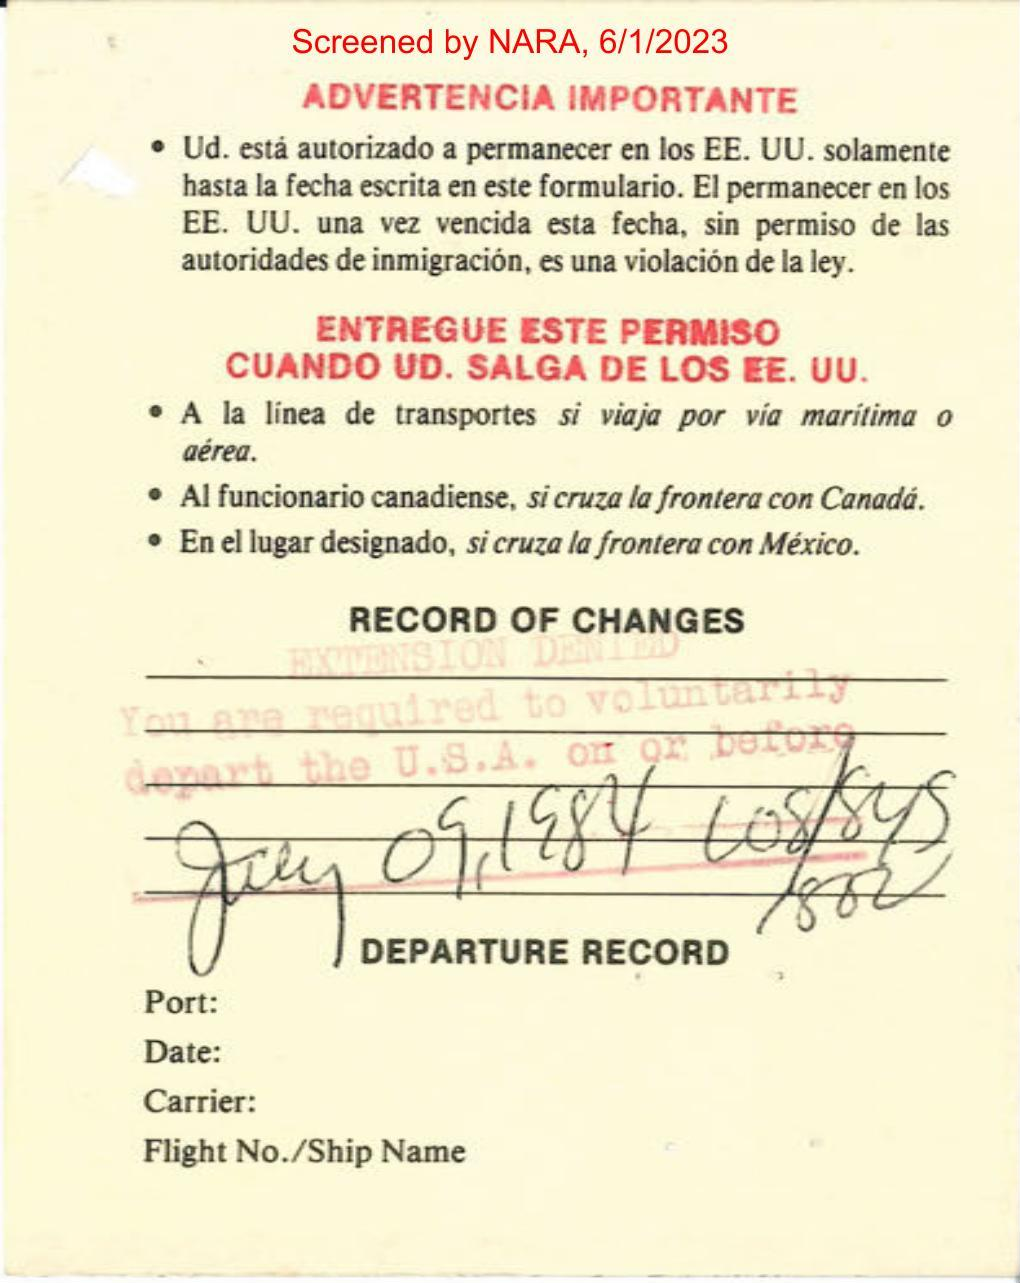 Screened by NARA, 6/1/2023
ADVERTENCIA IMPORTANTE
• Ud. está autorizado a permanecer en los EE. UU. solamente
hasta la fecha escrita en este formulario. El permanecer en los
EE. UU. una vez vencida esta fecha, sin permiso de las
autoridades de inmigración, es una violación de la ley.
ENTREGUE ESTE PERMISO
CUANDO UD. SALGA DE LOS EE. UU.
• A la línea de transportes si viaja por vía marítima o
aérea.
• Al funcionario canadiense, si cruza la frontera con Canadá.
• En el lugar designado, si cruza la frontera con México.
RECORD OF CHANGES
EXTENSION DENIED
You are required to voluntarily
depart the U.S.A. on or before
July 09, 1984
DEPARTURE RECORD
Port:
Date:
Carrier:
Flight No./Ship Name